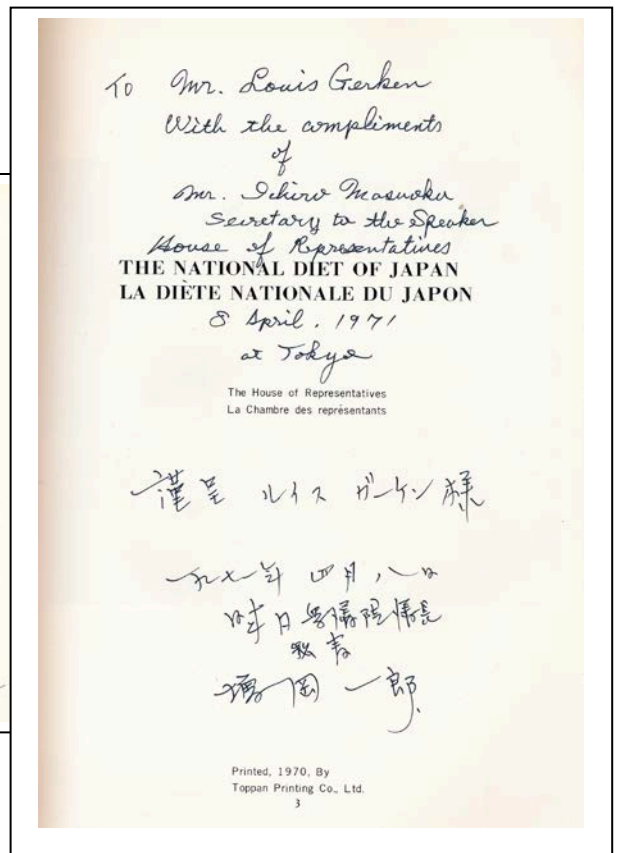 To Mr. Louis Gerken
With the compliments
of
Mr. Ichiro Masuoka
Secretary to the Speaker
House of Representatives
THE NATIONAL DIET OF JAPAN
LA DIÈTE NATIONALE DU JAPON
8 April. 1971
at Tokyo
The House of Representatives
La Chambre des représentants
謹呈 ルイス ガーケン 様
一九七一年 四月八日
日本国衆議院議長
秘書
岡 一郎
Printed, 1970, By
Toppan Printing Co., Ltd.
3